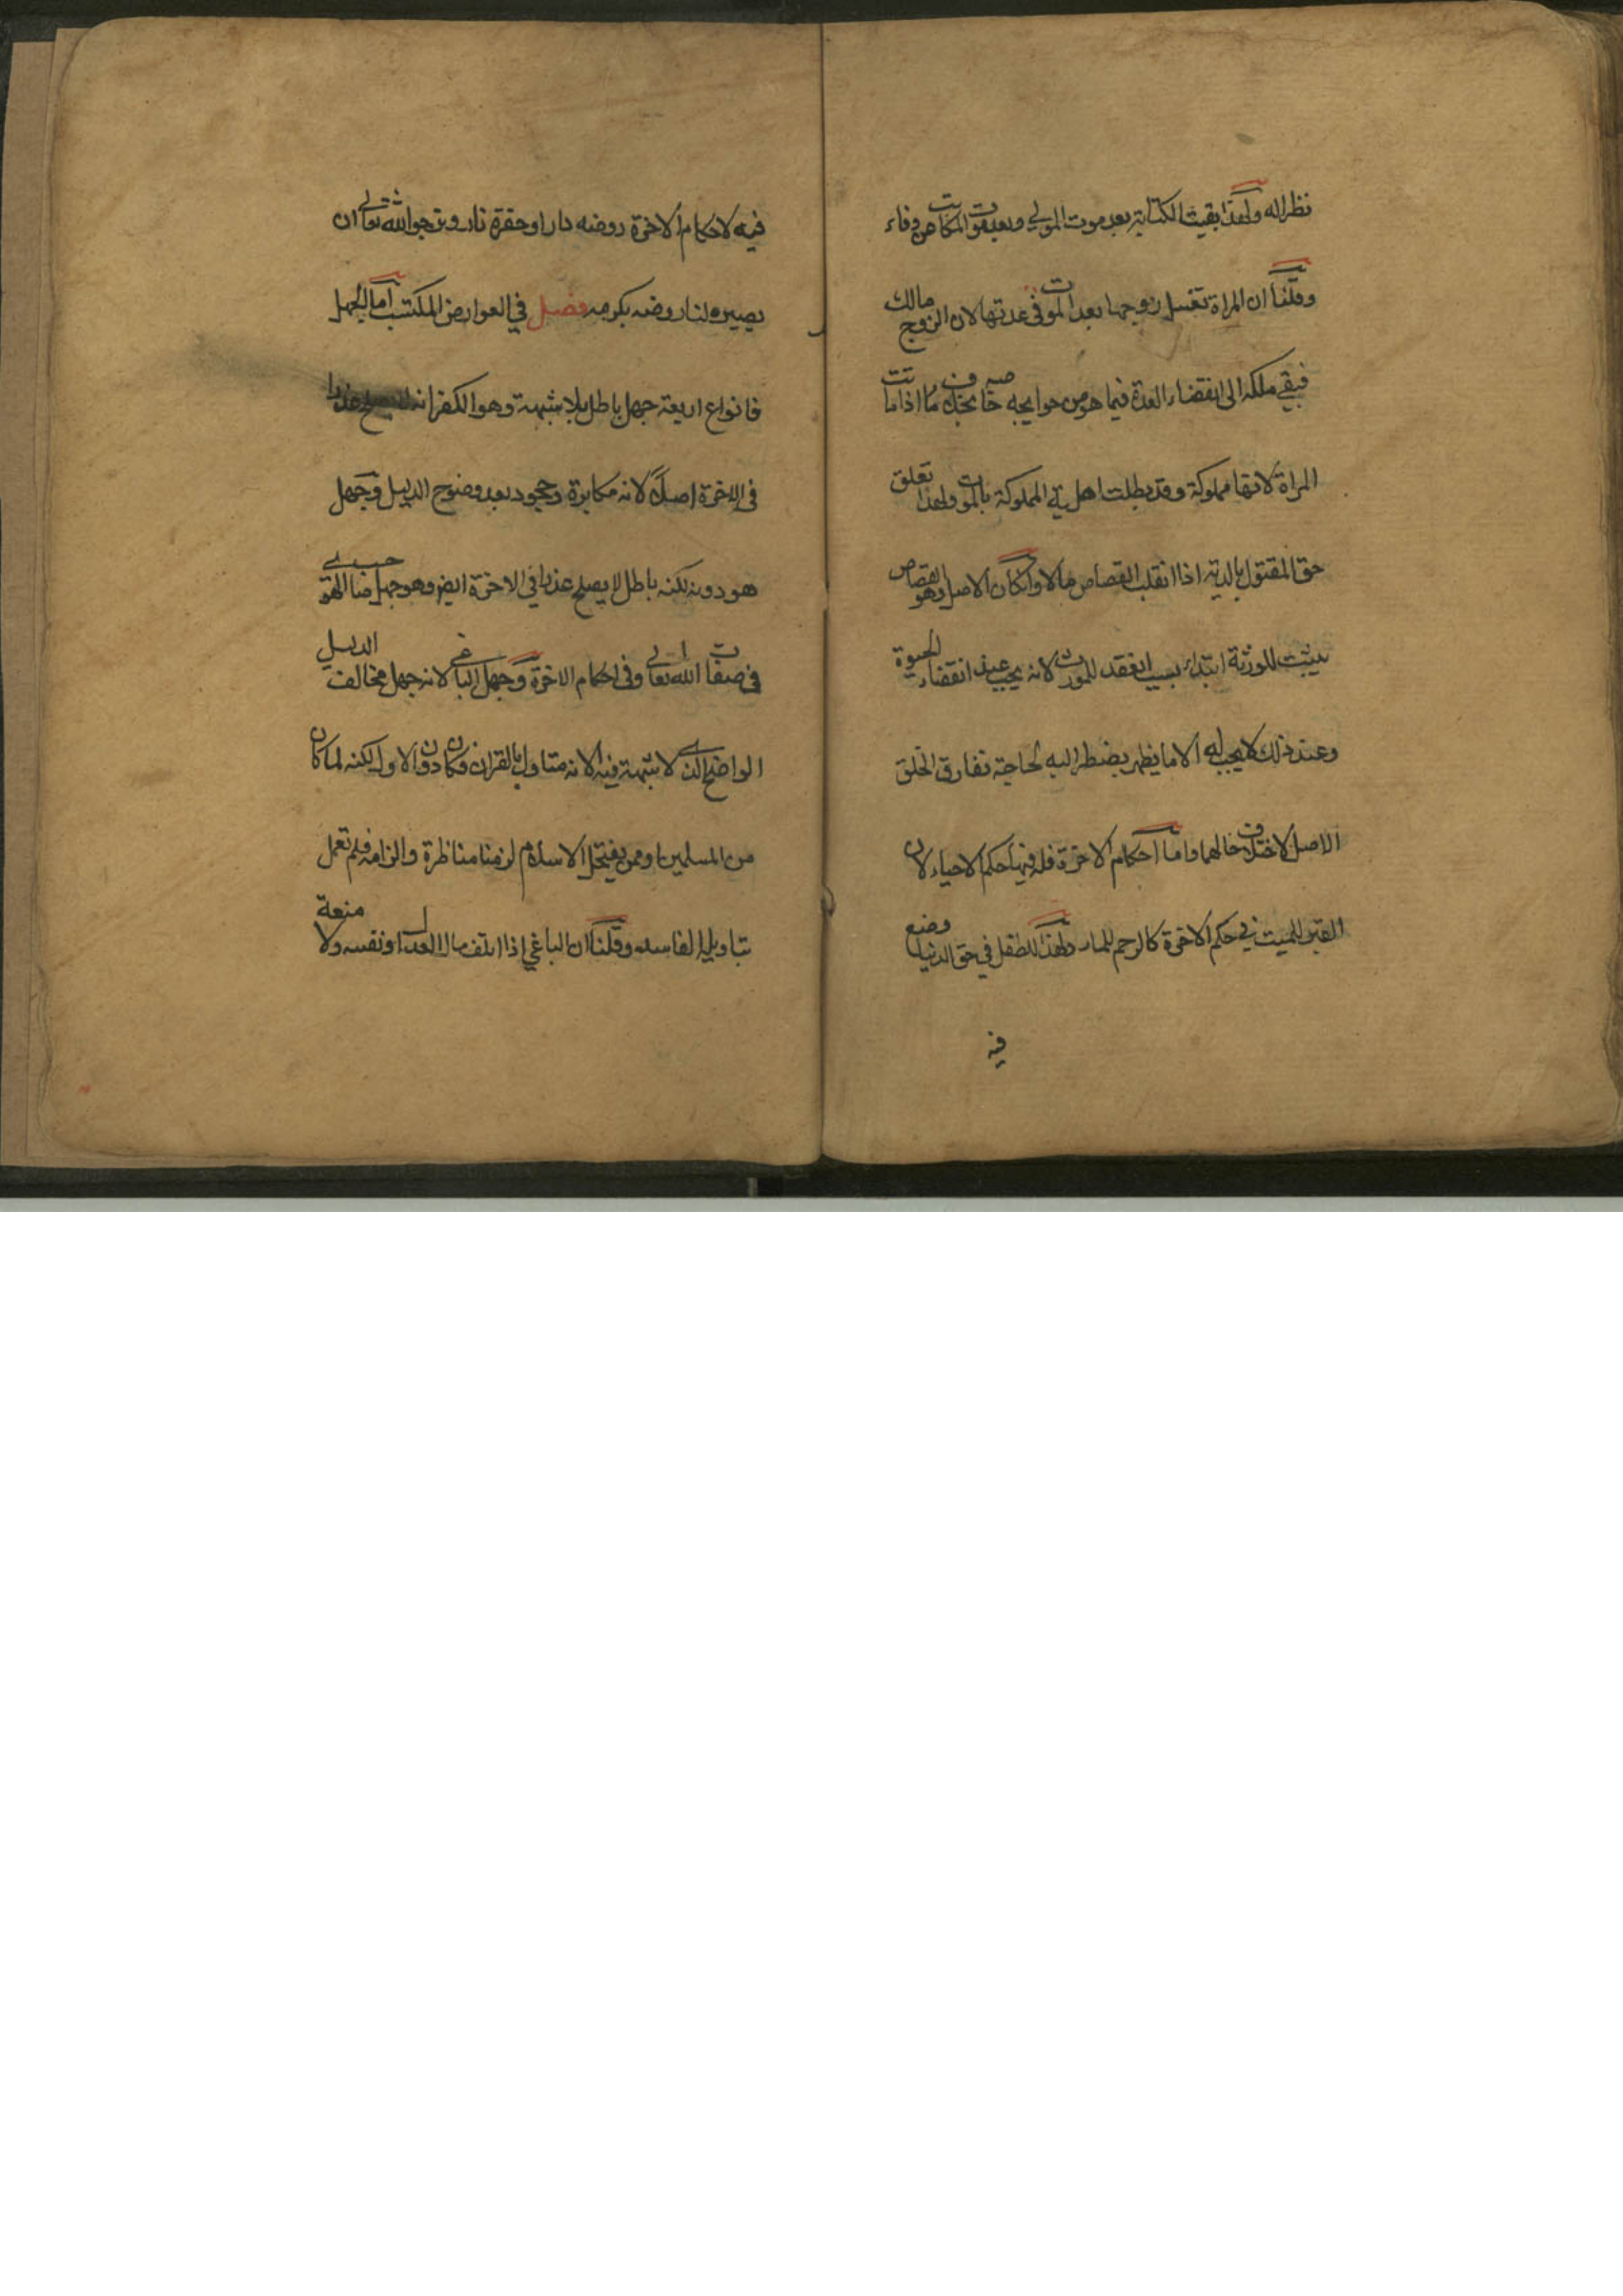 نظرا له ولهذا بقيت الكتابة بعد موت المولى وبعد موت المكاتب عن وفاء
وقلنا ان المراة تغسل زوجها بعد الموت في عدتها لان الزوج مالك
فبقي ملكه الى انقضاء العدة فيما هو من حوايجه خاصة بخلاف ما اذا ماتت
المراة لانها مملوكة وقد بطلت اهلية المملوكة بالموت ولهذا تعلق
حق المقتول بالدية اذا انقلب القصاص مالا وان كان الاصل وهو القصاص
يثبت للورثة ابتداء بسبب انعقد للمورث لانه يجب عند انقضاء الحيوة
وعند ذلك لا يجب له الا ما يضطر اليه لحاجته ففارق الخلف
الاصل لاختلاف حالهما واما احكام الاخرة فله فيها حكم الاحياء لان
القبر للميت في حكم الاخرة كالرحم للماء ولهذا للطفل في حق الدنيا وضع
فيه
فيه لاحكام الاخرة روضة دار او حفرة نار ونرجو الله تعالى ان
يصيره لنا روضة بكرمه فصل في العوارض المكتسبة اما الجهل
فانواع اربعة جهل باطل بلا شبهة وهو الكفر انه لا يصلح عذرا
في الاخرة اصلا لانه مكابرة وجحود بعد وضوح الدليل وجهل
هو دونه لكنه باطل لا يصلح عذرا في الاخرة ايضا وهو جهل صاحب الهوى
في صفات الله تعالى وفي احكام الاخرة وجهل الباغي لانه جهل مخالف الدليل
الواضح الذي لا شبهة فيه الا انه متاول بالقران فكان دون الاول لكنه لما كان
من المسلمين او ممن ينتحل الاسلام لزمنا مناظرة والزامه فلم نعمل
بتاويله الفاسد وقلنا ان الباغي اذا اتلف مال العدل او نفسه ولا منعة